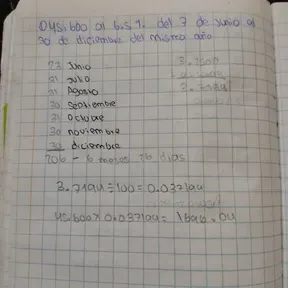 al 6.5 %. del 7 de Junio al
30 de diciembre del mismo año
23 Junio
31 Julio
31 Agosto
30 Septiembre
31 Octubre
30 noviembre
30 diciembre
206 - 6 meses 26 dias
3.7194 ÷ 100 = 0.037194
45.600 x 0.037194 = 1696.04